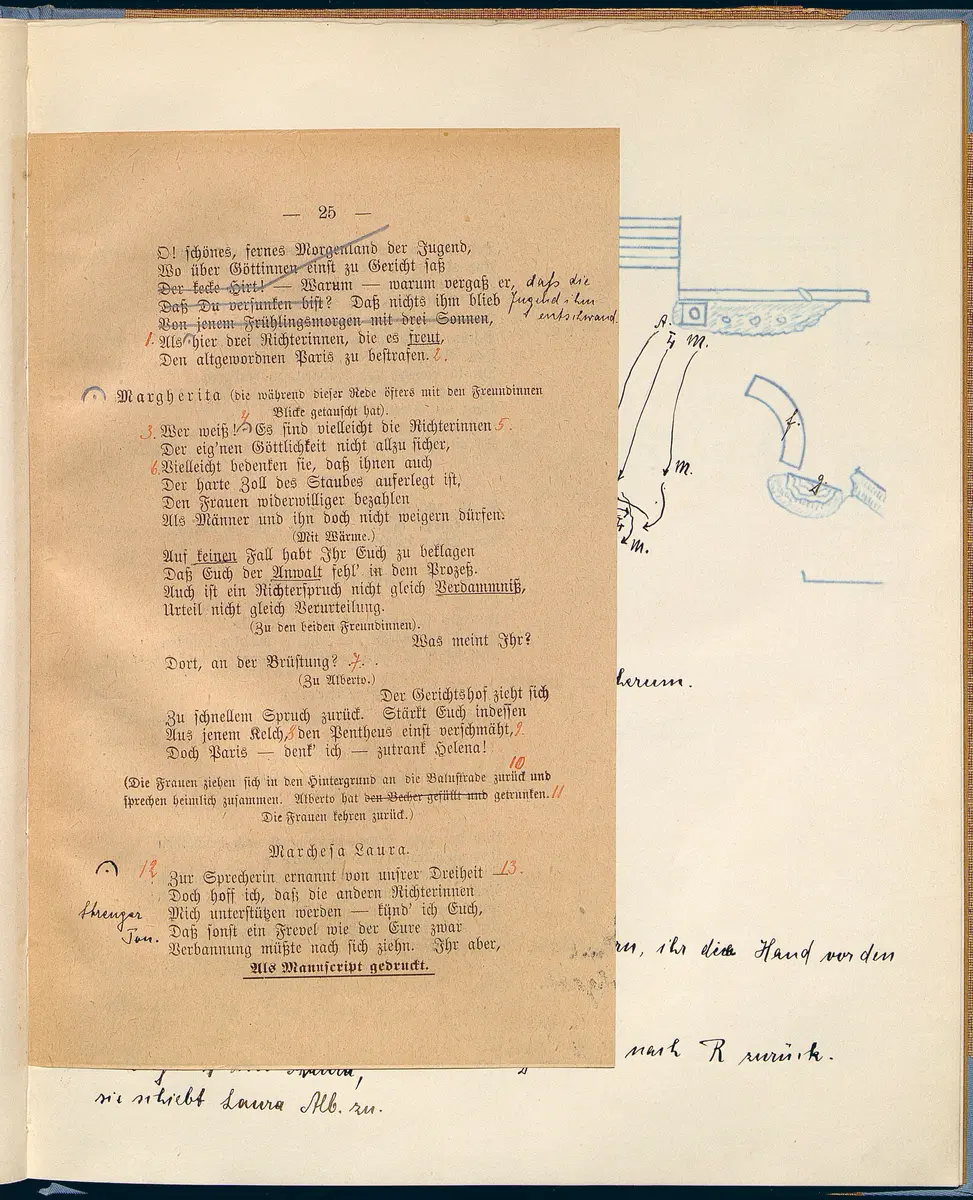 — 25 —
O! schönes, fernes Morgenland der Jugend,
Wo über Göttinnen einst zu Gericht saß
Der kecke Hirt! — Warum — warum vergaß er, daß die
Daß Du versunken bist? Daß nichts ihm blieb Jugend ihm
Von jenem Frühlingsmorgen mit drei Sonnen, entschwand.
1. Als hier drei Richterinnen, die es freut,
Den altgewordnen Paris zu bestrafen. 2.
Margherita (die während dieser Rede öfters mit den Freundinnen
Blicke getauscht hat).
3. Wer weiß! 4 Es sind vielleicht die Richterinnen 5.
Der eig'nen Göttlichkeit nicht allzu sicher,
6. Vielleicht bedenken sie, daß ihnen auch
Der harte Zoll des Staubes auferlegt ist,
Den Frauen widerwilliger bezahlen
Als Männer und ihn doch nicht weigern dürfen.
(Mit Wärme.)
Auf keinen Fall habt Ihr Euch zu beklagen
Daß Euch der Anwalt fehl' in dem Prozeß.
Auch ist ein Richterspruch nicht gleich Verdammniß,
Urteil nicht gleich Verurteilung.
(Zu den beiden Freundinnen).
Was meint Ihr?
Dort, an der Brüstung? 7.
(Zu Alberto.)
Der Gerichtshof zieht sich
Zu schnellem Spruch zurück. Stärkt Euch indessen
Aus jenem Kelch, 8 den Pentheus einst verschmäht, 9.
Doch Paris — denk' ich — zutrank Helena!
10
(Die Frauen ziehen sich in den Hintergrund an die Balustrade zurück und
sprechen heimlich zusammen. Alberto hat den Becher gefüllt und getrunken. 11
Die Frauen kehren zurück.)
Marchesa Laura.
12 Zur Sprecherin ernannt von unsrer Dreiheit 13.
Doch hoff ich, daß die andern Richterinnen
Strenger Mich unterstützen werden — künd' ich Euch,
Ton. Daß sonst ein Frevel wie der Eure zwar
Verbannung müßte nach sich ziehn. Ihr aber,
Als Manuscript gedruckt.
A. L M.
M.
M.
herum.
ihr die Hand vor den
nach R zurück.
sie schiebt Laura Alb. zu.